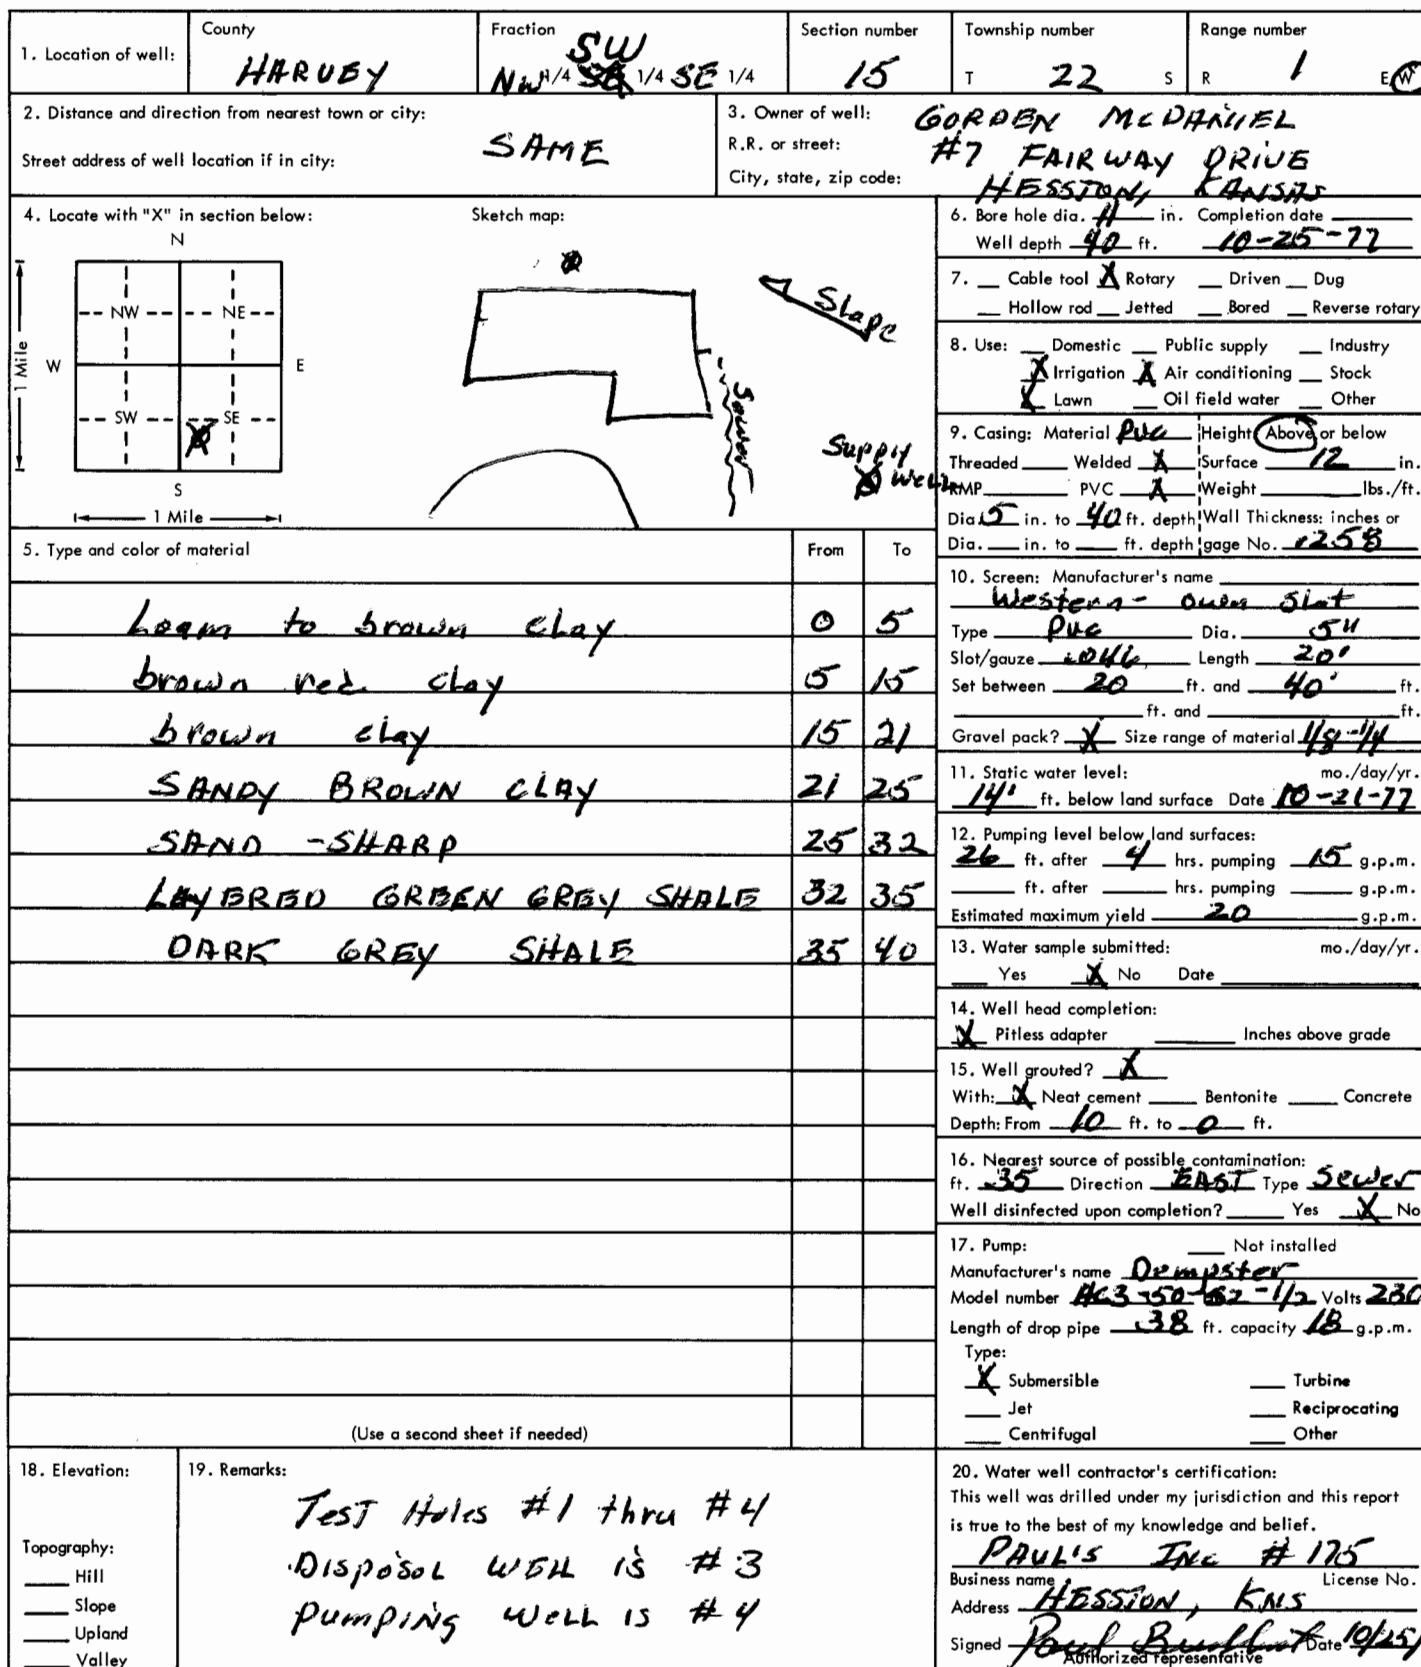 1. Location of well:
County
HARVEY
Fraction
SW
NW 1/4 1/4 SE 1/4
Section number
15
Township number
T 22 S
Range number
R 1 E W
2. Distance and direction from nearest town or city:
SAME
Street address of well location if in city:
3. Owner of well: GORDEN McDANIEL
R.R. or street: #7 FAIRWAY DRIVE
City, state, zip code: HESSTON, KANSAS
4. Locate with "X" in section below:
N
NW NE
W E
SW SE
X
S
1 Mile
1 Mile
Sketch map:
Slope
Sewer
Supply
X Well
5. Type and color of material From To
Loam to brown clay 0 5
brown red clay 5 15
brown clay 15 21
SANDY BROWN CLAY 21 25
SAND - SHARP 25 32
LAYERED GREEN GREY SHALE 32 35
DARK GREY SHALE 35 40
(Use a second sheet if needed)
6. Bore hole dia. in. Completion date
Well depth 40 ft. 10-25-77
7. Cable tool X Rotary Driven Dug
Hollow rod Jetted Bored Reverse rotary
8. Use: Domestic Public supply Industry
X Irrigation X Air conditioning Stock
X Lawn Oil field water Other
9. Casing: Material PVC Height Above or below
Threaded Welded X Surface 12 in.
RMP PVC X Weight lbs./ft.
Dia. 5 in. to 40 ft. depth Wall Thickness: inches or
Dia. in. to ft. depth gage No. .258
10. Screen: Manufacturer's name
Western - own slot
Type PVC Dia. 5"
Slot/gauze Length 20'
Set between 20 ft. and 40' ft.
ft. and ft.
Gravel pack? X Size range of material 1/8-1/4
11. Static water level: mo./day/yr.
14' ft. below land surface Date 10-21-77
12. Pumping level below land surfaces:
26 ft. after 4 hrs. pumping 15 g.p.m.
ft. after hrs. pumping g.p.m.
Estimated maximum yield 20 g.p.m.
13. Water sample submitted: mo./day/yr.
Yes X No Date
14. Well head completion:
X Pitless adapter Inches above grade
15. Well grouted? X
With: X Neat cement Bentonite Concrete
Depth: From 10 ft. to 0 ft.
16. Nearest source of possible contamination:
ft. 35 Direction EAST Type Sewer
Well disinfected upon completion? Yes X No
17. Pump: Not installed
Manufacturer's name Dempster
Model number Volts 230
Length of drop pipe 38 ft. capacity 18 g.p.m.
Type:
X Submersible Turbine
Jet Reciprocating
Centrifugal Other
18. Elevation:
Topography:
Hill
Slope
Upland
Valley
19. Remarks:
Test Holes #1 thru #4
Disposol WELL is #3
Pumping Well is #4
20. Water well contractor's certification:
This well was drilled under my jurisdiction and this report
is true to the best of my knowledge and belief.
PAUL'S INC # 175
Business name License No.
Address HESSTON, KNS
Signed Paul Date 10/25/
Authorized representative